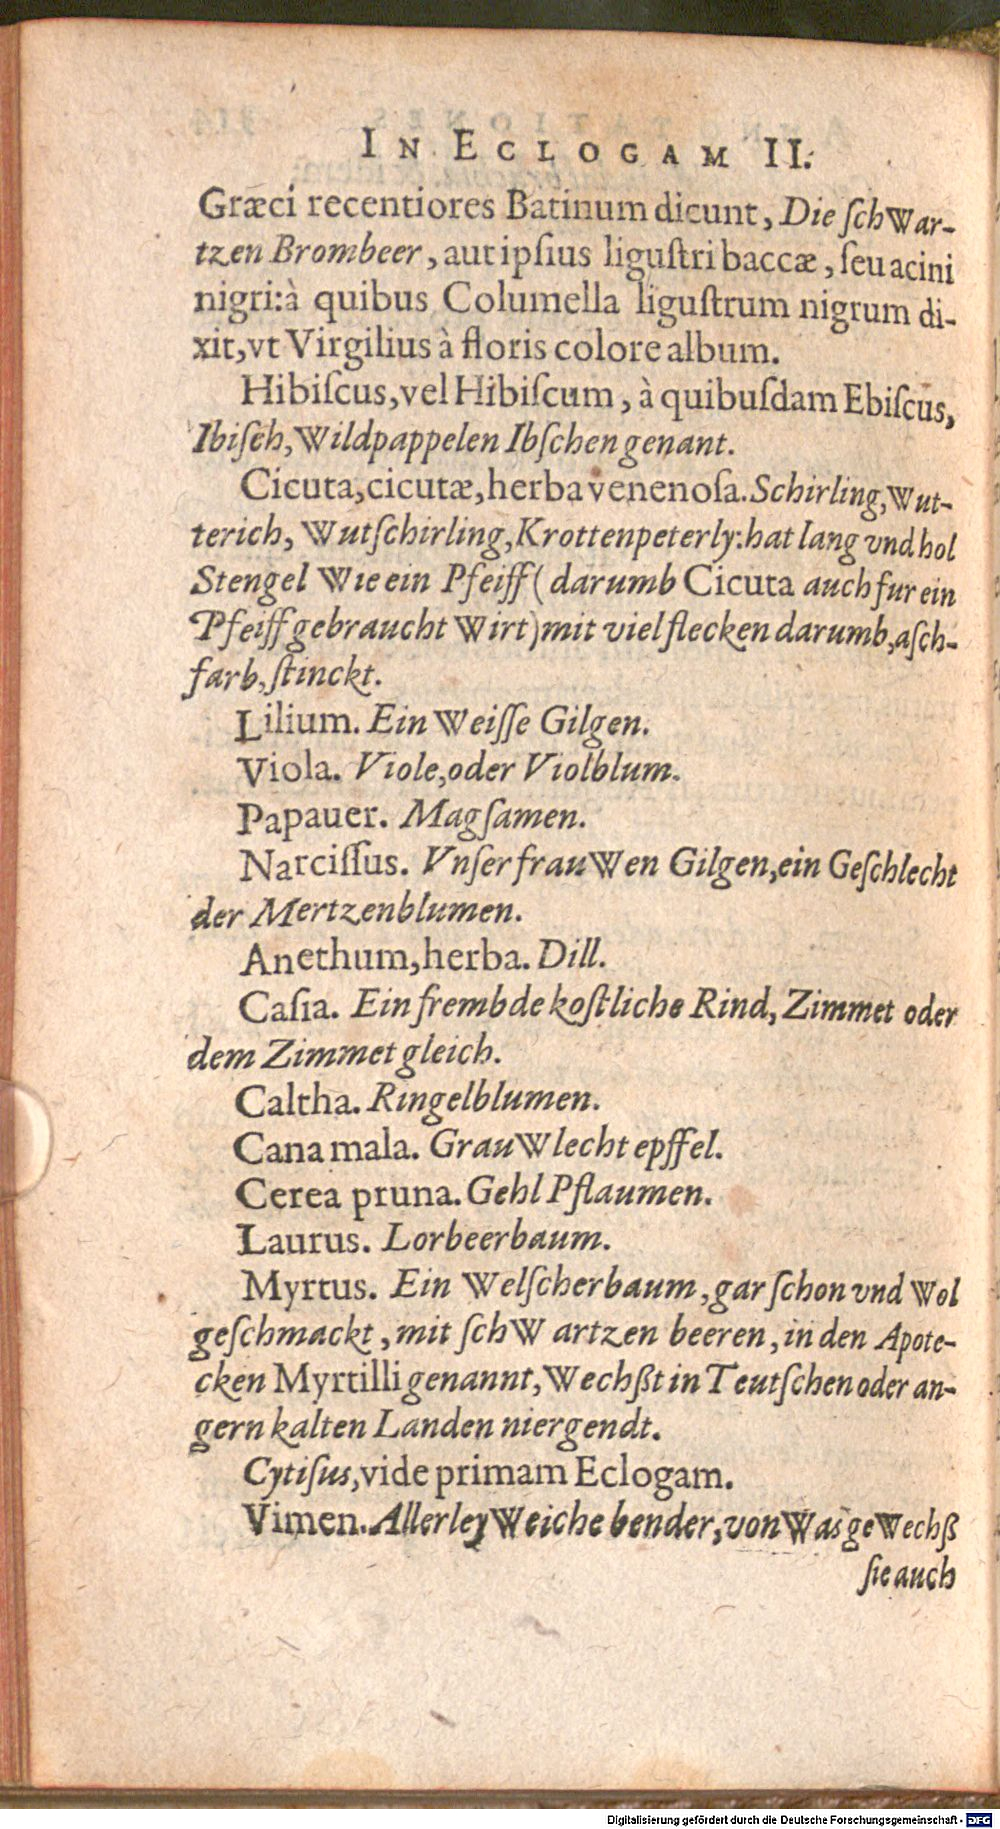 IN ECLOGAM II.
Græci recentiores Batinum dicunt, Die ſchwar-
tzen Brombeer, aut ipſius liguſtri baccæ, ſeu acini
nigri: à quibus Columella liguſtrum nigrum di-
xit, vt Virgilius à floris colore album.
Hibiſcus, vel Hibiſcum, à quibuſdam Ebiſcus,
Ibiſch, Wildpappelen Ibſchen genant.
Cicuta, cicutæ, herba venenoſa. Schirling, Wut-
terich, Wutſchirling, Krottenpeterly: hat lang vnd hol
Stengel Wie ein Pfeiff ( darumb Cicuta auch fur ein
Pfeiff gebraucht Wirt) mit viel flecken darumb, aſch-
farb, ſtinckt.
Lilium. Ein Weiſſe Gilgen.
Viola. Viole, oder Violblum.
Papauer. Magſamen.
Narciſſus. Vnſer frauWen Gilgen, ein Geſchlecht
der Mertzenblumen.
Anethum, herba. Dill.
Caſia. Ein frembde koſtliche Rind, Zimmet oder
dem Zimmet gleich.
Caltha. Ringelblumen.
Cana mala. GrauWlecht epffel.
Cerea pruna. Gehl Pflaumen.
Laurus. Lorbeerbaum.
Myrtus. Ein Welſcherbaum, gar ſchon vnd Wol
geſchmackt, mit ſchWartzen beeren, in den Apote-
cken Myrtilli genannt, Wechßt in Teutſchen oder an-
gern kalten Landen niergendt.
Cytiſus, vide primam Eclogam.
Vimen. Allerley Weiche bender, von Was geWechß
ſie auch
Digitalisierung gefördert durch die Deutsche Forschungsgemeinschaft - DFG